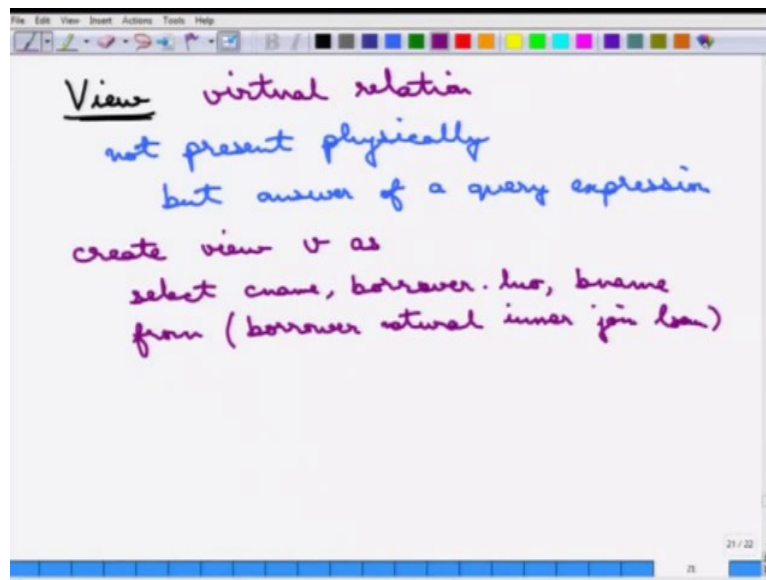 File Edit View Insert Actions Tools Help
View virtual relation
not present physically
but answer of a query expression
create view v as
select cname, borrower.lno, bname
from (borrower natural inner join loan)
21 / 22
21